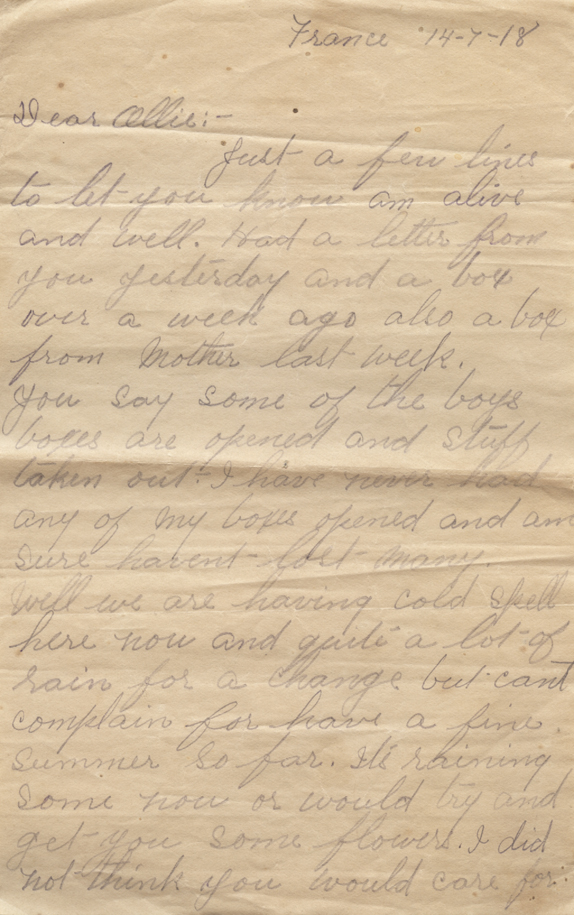 France 14-7-18
Dear Ollie:-
Just a few lines
to let you know am alive
and well. Had a letter from
you yesterday and a box
over a week ago also a box
from Mother last week.
You say some of the boys
boxes are opened and stuff
taken out. I have never had
any of my boxes opened and am
sure havent lost many.
Well we are having cold spell
here now and quite a lot of
rain for a change but cant
complain for have a fine
summer so far. Its raining
some now or would try and
get you some flowers. I did
not think you would care for